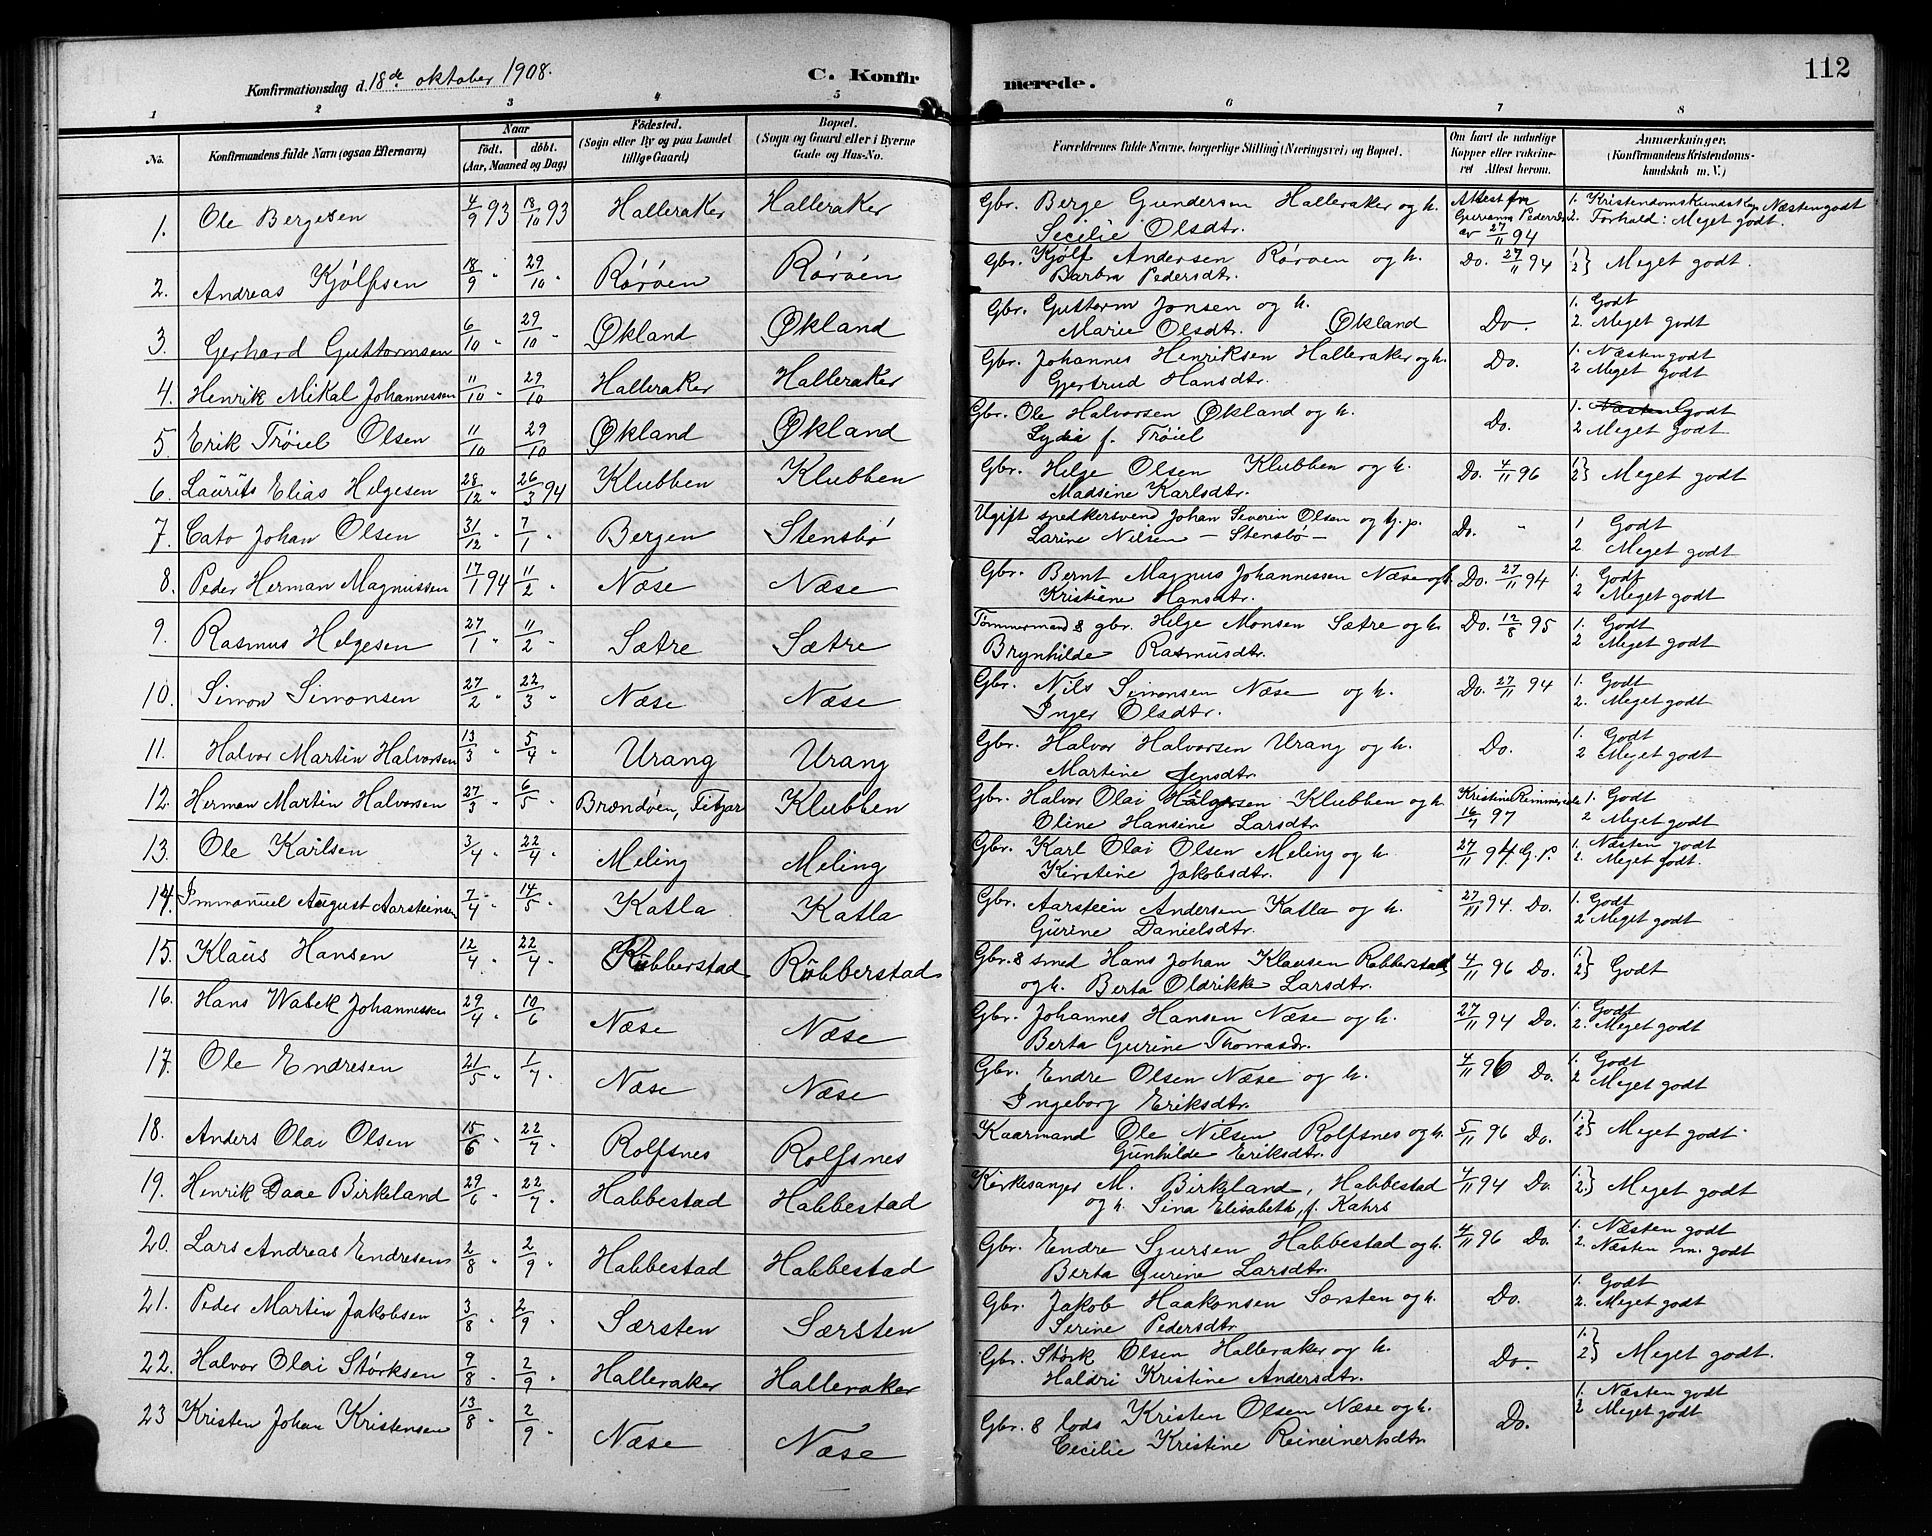 Konfirmationsdag d. 18de oktober 1908. C. Konfirmerede. 112
1 2 3 4 5 6 7 8
No. Konfirmandens fulde Navn (ogsaa Efternavn) Naar födt. döbt. (Aar, Maaned og Dag) Födested. (Sogn eller By og paa Landet tillige Gaard) Bopæl. (Sogn og Gaard eller i Byerne Gade og Hus-No. Forældrenes fulde Navne, borgerlige Stilling (Næringsvei) og Bopæl. Om havt de naturlige Kopper eller vakcineret Attest herom. Anmærkninger. (Konfirmandens Kristendomskundskab m. V.)
1. Ole Bergesen 4/9 93 18/10 93 Halleraker Halleraker Gbr. Berge Gundersen Halleraker og h. Attest fra 1. Kristendomskundskap Næsten godt
Secilie Olsdtr. av 27/11 94 2. Forhold: Meget godt.
2. Andreas Kjölfsen 18/9 " 29/10 " Röröen Röröen Gbr. Kjölf Andersen Röröen og h. Do. 27/11 94 1 2} Meget godt.
Barbra Pedersdtr.
3. Gerhard Guttormsen 6/10 " 29/10 " Økland Økland Gbr. Guttorm Jonsen og h. Do. 1. Godt
Marie Olsdtr. Økland 2. Meget godt
4. Henrik Mikal Johannessen 11/10 " 29/10 Halleraker Halleraker Gbr. Johannes Henriksen Halleraker og h. Do. 1. Næsten godt
Gjertrud Hansdtr. 2 Meget godt
5. Erik Tröiel Olsen 11/10 29/10 Økland Økland Gbr. Ole Halvorsen Økland og h. Do. 1. Næsten Godt
Lydia f. Tröiel 2 Meget Godt
6. Laurits Elias Helgesen 28/12 " 26/3 94 Klubben Klubben Gbr. Helge Olsen Klubben og h. Do. 4/11 96 1 2} Meget godt
Madsine Karlsdtr.
7. Cato Johan Olsen 31/12 " 7/1 " Bergen Stensbö Ugift snedkersvend Johan Severin Olsen og g.p. Do. " 1 Godt
Larine Nilsen - Stensbö - 2. Meget godt
8. Peder Herman Magnussen 17/1 94 11/2 " Næse Næse Gbr. Bernt Magnus Johannessen Næse og h. Do. 27/11 94 1. Godt
Kristiane Hansdtr. 2 Meget godt
9. Rasmus Helgesen 27/1 " 11/2 " Sætre Sætre Tömmermand & gbr. Helge Monsen Sætre og h. Do. 12/8 95 1. Godt
Brynhilde Rasmusdtr. 2 Meget godt
10. Simon Simonsen 27/2 " 22/3 " Næse Næse Gbr. Nils Simonsen Næse og h. Do. 27/11 94 1. Godt
Inger Olsdtr. 2. Meget godt
11. Halvor Martin Halvorsen 13/3 " 5/4 " Urang Urang Gbr. Halvor Halvorsen Urang og h. Do. 1. Godt
Martine Jensdtr. 2 Meget godt
12. Herman Martin Halvorsen 27/3 " 6/5 " Brændöen, Fitjar Klubben Gbr. Halvor Olai Klubben og h. Kristine 1. Godt
Oline Hansine Larsdtr. 16/7 97 2 Meget godt
13. Ole Karlsen 3/4 " 22/4 " Meling Meling Gbr. Karl Olai Olsen Meling og h. 27/11 94 G. P. 1. Næsten godt
Kirstine Jakobsdtr. 2. Meget godt.
14. Immanuel August Aarsteinsen 7/4 " 14/5 " Katla Katla Gbr. Aarstein Andersen Katla og h. 27/11 94. Do. 1. Godt
Gurine Danielsdtr. 2 Meget godt
15. Klaus Hansen 12/4 " 22/4 " Robberstad Robberstad Gbr. & smed Hans Johan Klausen Robberstad 4/11 96 Do. 1 2} Godt
og h. Berta Oldrikke Larsdtr.
16. Hans Wabek Johannessen 29/4 " 10/6 " Næse Næse Gbr. Johannes Hansen Næse og h. 27/11 94 Do. 1. Godt
Berta Gurine Thomasdr. 2. Meget godt
17. Ole Endresen 21/5 " 1/7 " Næse Næse Gbr. Endre Olsen Næse og h. 4/11 96 Do. 1. Godt
Ingeborg Eriksdtr. 2 Meget godt
18. Anders Olai Olsen 15/6 " 22/7 " Rolfsnes Rolfsnes Kaarmand Ole Nilsen Rolfsnes og h. 5/11 96 Do. 1. 2} Meget godt.
Gunhilde Eriksdtr.
19. Henrik Daae Birkeland 29/6 " 22/7 " Habbestad Habbestad Kirkesanger M. Birkeland, Habbestad 4/11 94 Do. 1. 2.} Meget godt
og h. Sina Elisabeth, f. Kahrs
20. Lars Andreas Endresen 2/8 " 2/9 " Habbestad Habbestad Gbr. Endre Sjursen Habbestad og h. 4/11 96 Do. 1. Næsten godt
Berta Gurine Larsdtr. 2. Næsten m. godt
21. Peder Martin Jakobsen 3/8 " 2/9 " Særsten Særsten Gbr. Jakob Haakonsen Særsten og h. Do. 1. Godt
Serine Pedersdtr. 2. Meget godt
22. Halvor Olai Störksen 9/8 " 2/9 " Halleraker Halleraker Gbr. Störk Olsen Halleraker og h. Do. 1. 2.} Meget godt.
Haldri Kristine Andersdtr.
23 Kristen Johan Kristensen 13/8 " 2/9 " Næse Næse Gbr. & lods Kristen Olsen Næse og h. Do. 1. Næsten godt
Cecilie Kristine Reineinertsdtr 2 Meget godt